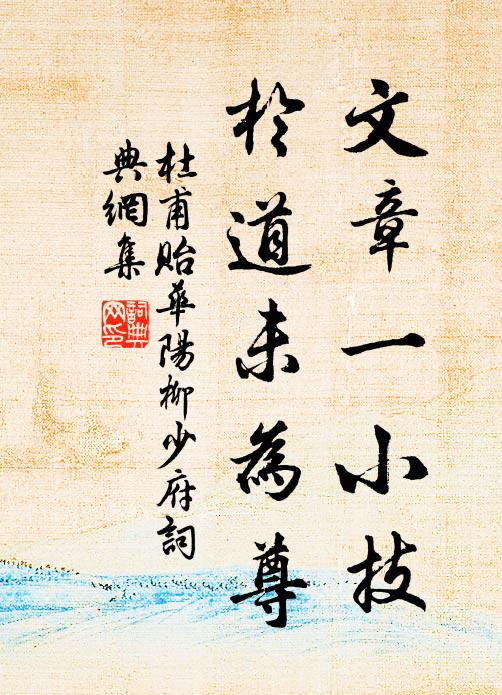 文章一小技
於道未為尊
杜甫貽華陽柳少府詞
典網集
詞典
网印